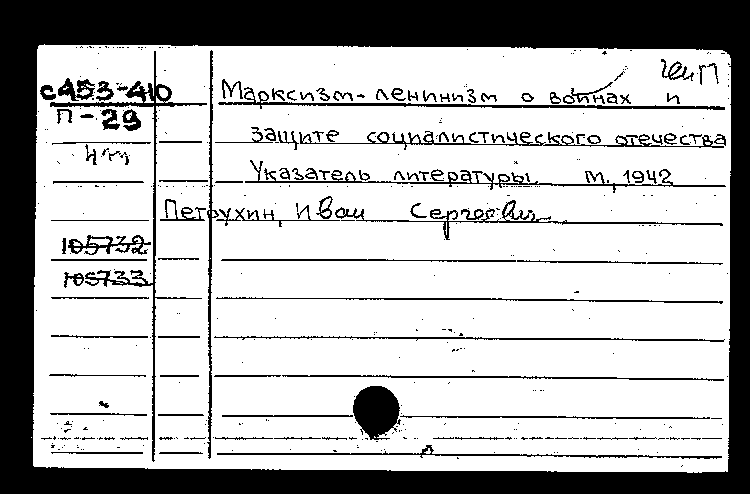 с453-410
Марксизм-ленинизм о войнах и
П-29
защите социалистического отечества
Указатель литературы М., 1942
Петрухин, Иван Сергеевич
105732
105733